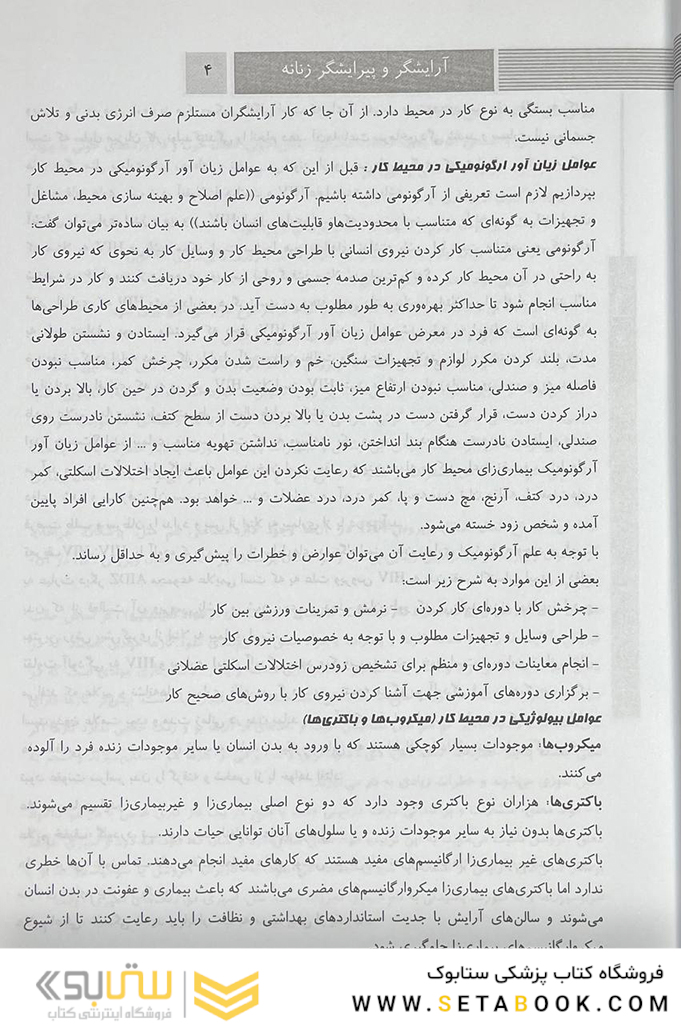 آرایشگر و پیرایشگر زنانه
۴
مناسب بستگی به نوع کار در محیط دارد. از آن جا که کار آرایشگران مستلزم صرف انرژی بدنی و تلاش
جسمانی نیست.
عوامل زیان آور ارگونومیکی در محیط کار : قبل از این که به عوامل زیان آور آرگونومیکی در محیط کار
بپردازیم لازم است تعریفی از آرگونومی داشته باشیم. آرگونومی ((علم اصلاح و بهینه سازی محیط، مشاغل
و تجهیزات به گونه‌ای که متناسب با محدودیت‌هاو قابلیت‌های انسان باشند)) به بیان ساده‌تر می‌توان گفت:
آرگونومی یعنی متناسب کار کردن نیروی انسانی با طراحی محیط کار و وسایل کار به نحوی که نیروی کار
به راحتی در آن محیط کار کرده و کم‌ترین صدمه جسمی و روحی از کار خود دریافت کنند و کار در شرایط
مناسب انجام شود تا حداکثر بهره‌وری به طور مطلوب به دست آید. در بعضی از محیط‌های کاری طراحی‌ها
به گونه‌ای است که فرد در معرض عوامل زیان آور آرگونومیکی قرار می‌گیرد. ایستادن و نشستن طولانی
مدت، بلند کردن مکرر لوازم و تجهیزات سنگین، خم و راست شدن مکرر، چرخش کمر، مناسب نبودن
فاصله میز و صندلی، مناسب نبودن ارتفاع میز، ثابت بودن وضعیت بدن و گردن در حین کار، بالا بردن یا
دراز کردن دست، قرار گرفتن دست در پشت بدن یا بالا بردن دست از سطح کتف، نشستن نادرست روی
صندلی، ایستادن نادرست هنگام بند انداختن، نور نامناسب، نداشتن تهویه مناسب و ... از عوامل زیان آور
آرگونومیک بیماری‌زای محیط کار می‌باشند که رعایت نکردن این عوامل باعث ایجاد اختلالات اسکلتی، کمر
درد، درد کتف، آرنج، مچ دست و پا، کمر درد، درد عضلات و ... خواهد بود. هم‌چنین کارایی افراد پایین
آمده و شخص زود خسته می‌شود.
با توجه به علم آرگونومیک و رعایت آن می‌توان عوارض و خطرات را پیش‌گیری و به حداقل رساند.
بعضی از این موارد به شرح زیر است:
- چرخش کار با دوره‌ای کار کردن - نرمش و تمرینات ورزشی بین کار
- طراحی وسایل و تجهیزات مطلوب و با توجه به خصوصیات نیروی کار
- انجام معاینات دوره‌ای و منظم برای تشخیص زودرس اختلالات اسکلتی عضلانی
- برگزاری دوره‌های آموزشی جهت آشنا کردن نیروی کار با روش‌های صحیح کار
عوامل بیولوژیکی در محیط کار (میکروب‌ها و باکتری‌ها)
میکروب‌ها: موجودات بسیار کوچکی هستند که با ورود به بدن انسان یا سایر موجودات زنده فرد را آلوده
می‌کنند.
باکتری‌ها: هزاران نوع باکتری وجود دارد که دو نوع اصلی بیماری‌زا و غیربیماری‌زا تقسیم می‌شوند.
باکتری‌ها بدون نیاز به سایر موجودات زنده و یا سلول‌های آنان توانایی حیات دارند.
باکتری‌های غیر بیماری‌زا ارگانیسم‌های مفید هستند که کارهای مفید انجام می‌دهند. تماس با آن‌ها خطری
ندارد اما باکتری‌های بیماری‌زا میکروارگانیسم‌های مضری می‌باشند که باعث بیماری و عفونت در بدن انسان
می‌شوند و سالن‌های آرایش با جدیت استانداردهای بهداشتی و نظافت را باید رعایت کنند تا از شیوع
میکروارگانیسم‌های بیماری‌زا جلوگیری شود.
فروشگاه کتاب پزشکی ستابوک
WWW.SETABOOK.COM
ستابوک
فروشگاه اینترنتی کتاب